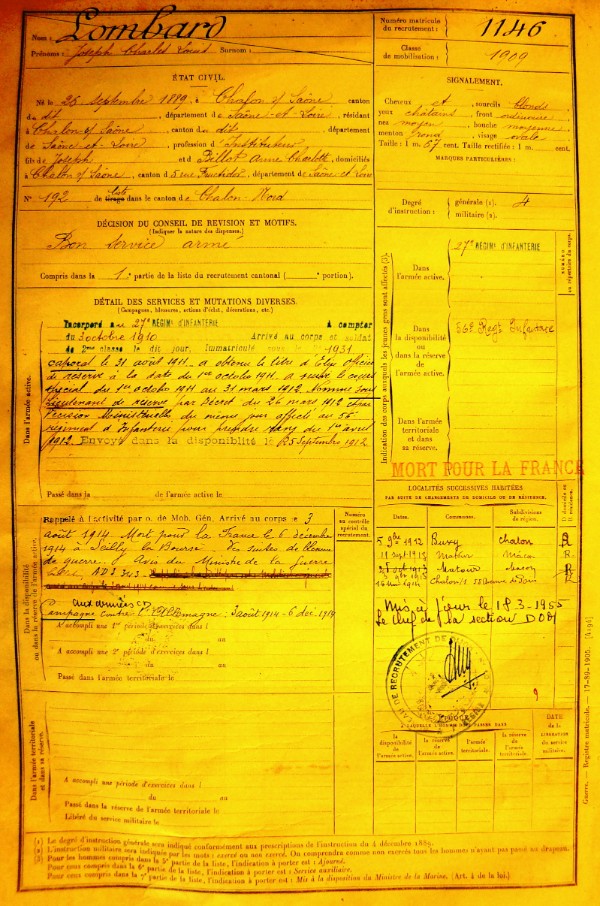 Nom : Lombard
Prénoms : Joseph Charles Louis Surnom :
Numéro matricule du recrutement : 1146
Classe de mobilisation : 1909
ÉTAT CIVIL.
Né le 26 septembre 1889, à Chalon s/ Saône, canton
du dit, département de Saône-et-Loire, résidant
à Chalon s/ Saône, canton du dit, département
de Saône-et-Loire, profession d'Instituteur
fils de Joseph et Billot Anne Charlotte, domiciliés
à Chalon s/ Saône, canton d 5 rue Fructidor, département de Saône et Loire
N° 192 de liste dans le canton de Chalon-Nord
SIGNALEMENT.
Cheveux et sourcils blonds
yeux châtains front ordinaire
nez moyen bouche moyenne
menton rond visage ovale
Taille : 1 m. 67 cent. Taille rectifiée : 1 m. cent.
MARQUES PARTICULIÈRES :
Degré d'instruction :
générale (1). 4
militaire (2).
DÉCISION DU CONSEIL DE REVISION ET MOTIFS.
(Indiquer la nature des dispenses.)
Bon service armé
Compris dans la 1e partie de la liste du recrutement cantonal ( portion).
DÉTAIL DES SERVICES ET MUTATIONS DIVERSES.
(Campagnes, blessures, actions d'éclat, décorations, etc.)
Dans l'armée active.
Incorporé au 27e RÉGIMt D'INFANTERIE à compter
du 3 octobre 1910 Arrivé au corps et soldat
de 2eme classe le dit jour, Immatriculé sous le n° 1931
caporal le 31 avril 1911. a obtenu le titre d'élève officier
de réserve à la date du 1er octobre 1911. a suivi le cours
spécial du 1er octobre 1911 au 31 mars 1912. Nommé sous
lieutenant de réserve par décret du 26 mars 1912
décision Ministérielle du même jour affecté au 56
régiment d'Infanterie pour prendre rang du 1er avril
1912. Envoyé dans la disponibilité le 25 septembre 1912
Passé dans la de l'armée active le
Indication des corps auxquels les jeunes gens sont affectés (3).
NUMÉRO au répertoire du corps.
Dans l'armée active.
27e RÉGIMt D'INFANTERIE
Dans la disponibilité ou dans la réserve de l'armée active.
56e Régt Infanterie
Dans l'armée territoriale et dans sa réserve.
MORT POUR LA FRANCE
Dans la disponibilité ou dans la réserve de l'armée active.
Numéro au contrôle spécial du recrutement.
Rappelé à l'activité par o. de Mob. Gén. Arrivé au corps le 3
août 1914 Mort pour la France le 6 décembre
1914 à Sailly la Bourse des suites de blessures
de guerre. Avis du Ministre de la Guerre
aux armées
Campagne contre l'Allemagne : 3 août 1914 - 6 déc. 1914
A accompli une 1re période d'exercices dans l
du au
A accompli une 2e période d'exercices dans l
du au
Passé dans l'armée territoriale le
LOCALITÉS SUCCESSIVES HABITÉES
PAR SUITE DE CHANGEMENTS DE DOMICILE OU DE RÉSIDENCE.
Dates. Communes. Subdivisions de région. D. domicile ou R. résidence.
5 9bre 1912 Buxy Chalon R
Mâcon R.
Matour Macon R
Chalon
Mis à jour le 18-3-1955
Le chef de la section
BUREAU DE RECRUTEMENT DE
la disponibilité de l'armée active. la réserve de l'armée active. l'armée territoriale. la réserve de l'armée territoriale.
DATE de la LIBÉRATION du service militaire.
Dans l'armée territoriale et dans sa réserve.
A accompli une période d'exercices dans l
du au
Passé dans la réserve de l'armée territoriale le
Libéré du service militaire le
Guerre. — Registre matricule. — 17-89-1905. [4194]
(1) Le degré d'instruction générale sera indiqué conformément aux prescriptions de l'instruction du 4 décembre 1889.
(2) L'instruction militaire sera indiquée par les mots : exercé ou non exercé. On comprendra comme non exercés tous les hommes n'ayant pas passé au drapeau.
(3) Pour les hommes compris dans la 5e partie de la liste, l'indication à porter est : Ajourné.
Pour ceux compris dans la 6e partie de la liste, l'indication à porter est : Service auxiliaire.
Pour ceux compris dans la 7e partie de la liste, l'indication à porter est : Mis à la disposition du Ministre de la Marine. (Art. 4 de la loi.)